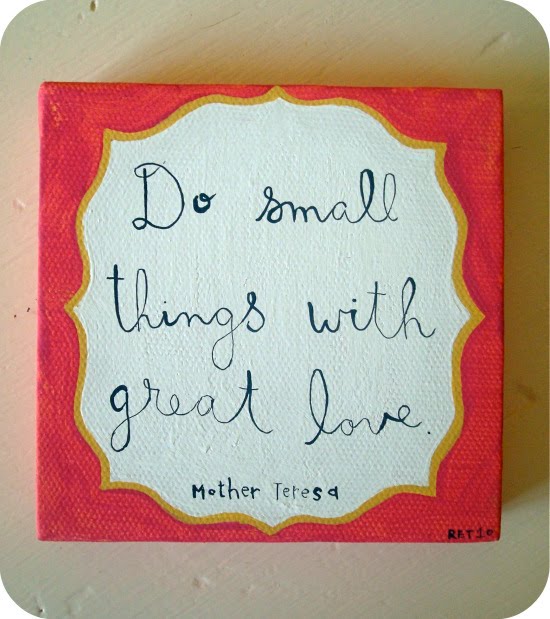 Do small
things with
great love.
Mother Teresa
RET10